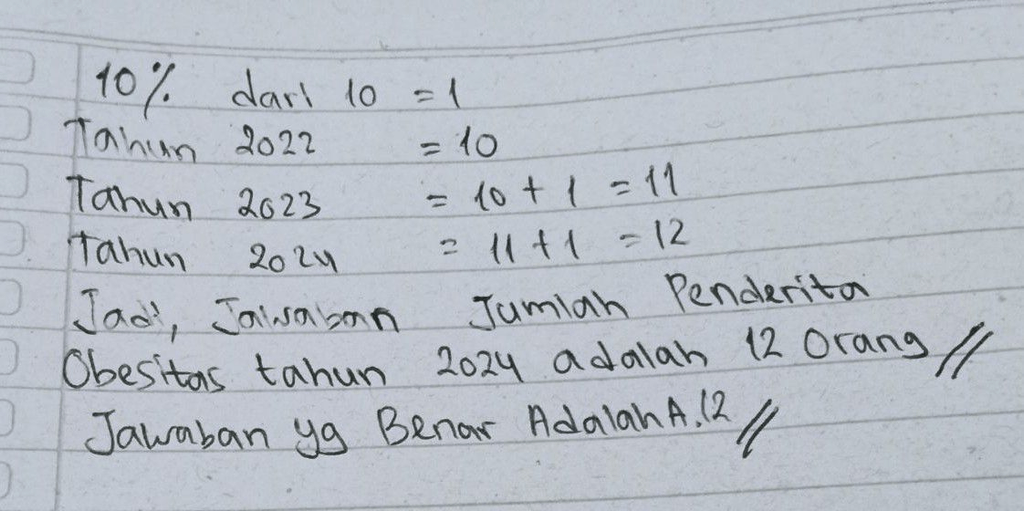 10% dari 10 = 1
Tahun 2022 = 10
Tahun 2023 = 10 + 1 = 11
Tahun 2024 = 11 + 1 = 12
Jadi, Jawaban Jumlah Penderita
Obesitas tahun 2024 adalah 12 Orang //
Jawaban yg Benar Adalah A. 12 //